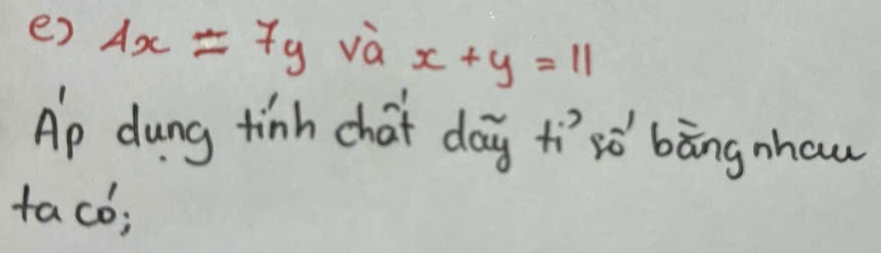 e) 4x = 7y và x + y = 11
Áp dụng tính chất dãy tỉ số bằng nhau
ta có;